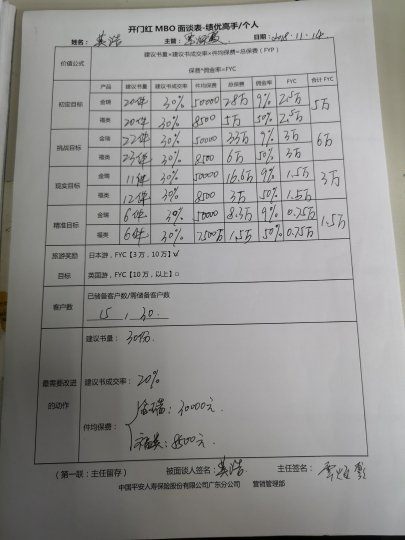 开门红 MBO 面谈表-绩优高手/个人
姓名： 主管： 日期：2018-11-14
价值公式
建议书量×建议书成交率=件数×件均保费=总保费（FYP）
保费*佣金率=FYC
产品 建议书量 建议书成交率 件均保费 总保费 佣金率 FYC 合计 FYC
初定目标 金瑞 20件 30% 50000 28万 9% 2.5万 5万
福类 20件 30% 8500 5万 50% 2.5万
挑战目标 金瑞 22件 30% 50000 33万 9% 3万 6万
福类 23件 30% 8500 6万 50% 3万
现实目标 金瑞 11件 30% 50000 16.6万 9% 1.5万 3万
福类 12件 30% 8500 3万 50% 1.5万
精准目标 金瑞 6件 30% 50000 8.3万 9% 0.75万 1.5万
福类 6件 30% 7500 1.5万 50% 0.75万
旅游奖励
目标
日本游，FYC【3 万，10 万】√
英国游，FYC【10 万，以上】□
客户数
已储备客户数/需储备客户数
15 , 30
最需要改进
的动作
建议书量：30份
建议书成交率：20%
件均保费：
金瑞：30000元
福类：8500元
（第一联：主任留存） 被面谈人签名： 主任签名：
中国平安人寿保险股份有限公司广东分公司 营销管理部